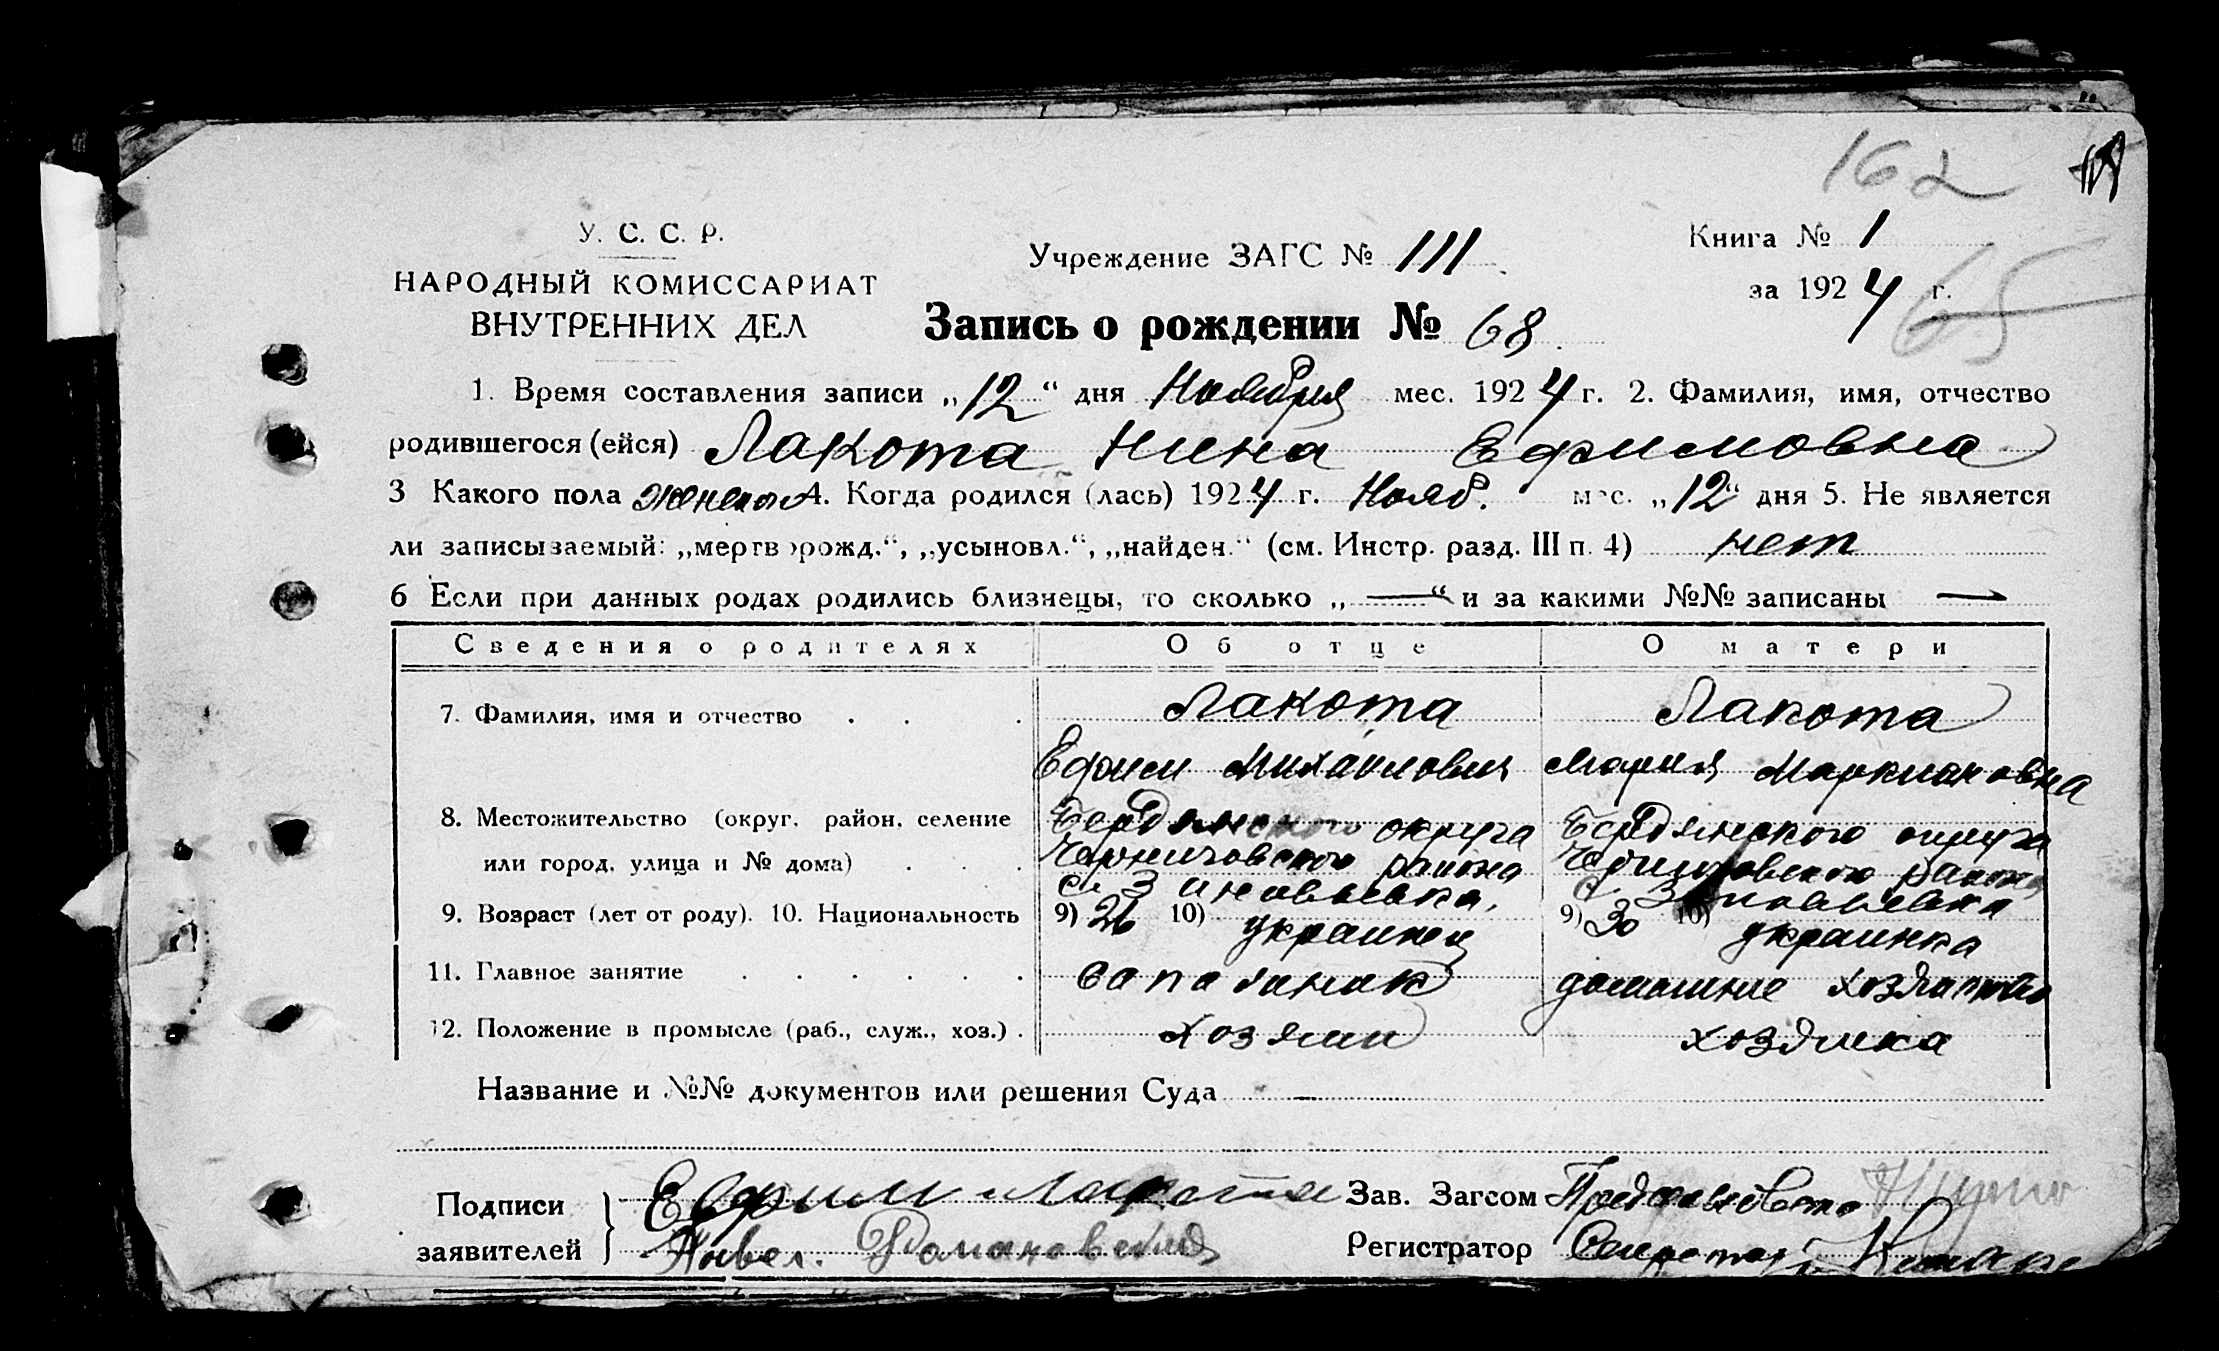 162
У. С. С. Р.
НАРОДНЫЙ КОМИССАРИАТ
ВНУТРЕННИХ ДЕЛ
Учреждение ЗАГС № 111
Книга № 1
за 1924 г.
65
Запись о рождении № 68.
1. Время составления записи „12“ дня Ноября мес. 1924 г. 2. Фамилия, имя, отчество
родившегося (ейся) Лакота Нина Ефимовна
3 Какого пола женск 4. Когда родился (лась) 1924 г. Нояб. мес. „12“ дня 5. Не является
ли записываемый: „мертворожд.“, „усыновл.“, „найден.“ (см. Инстр. разд. III п. 4) нет
6 Если при данных родах родились близнецы, то сколько „—“ и за какими №№ записаны —
Сведения о родителях Об отце О матери
7. Фамилия, имя и отчество Лакота Лакота
Ефим Михайлович Мария Маркиановна
8. Местожительство (округ, район, селение Бердянского округа Бердянского округа
или город, улица и № дома) Черниговского района Черниговского района
с. Зиновьевка. с. Зиновьевка
9. Возраст (лет от роду). 10. Национальность 9) 26 10) украинец 9) 30 10) украинка
11. Главное занятие домашнее хозяйство
12. Положение в промысле (раб., служ., хоз.) . хозяин хозяйка
Название и №№ документов или решения Суда —
Подписи заявителей } Ефим Лакота
Зав. Загсом
Романовский
Регистратор Секретарь